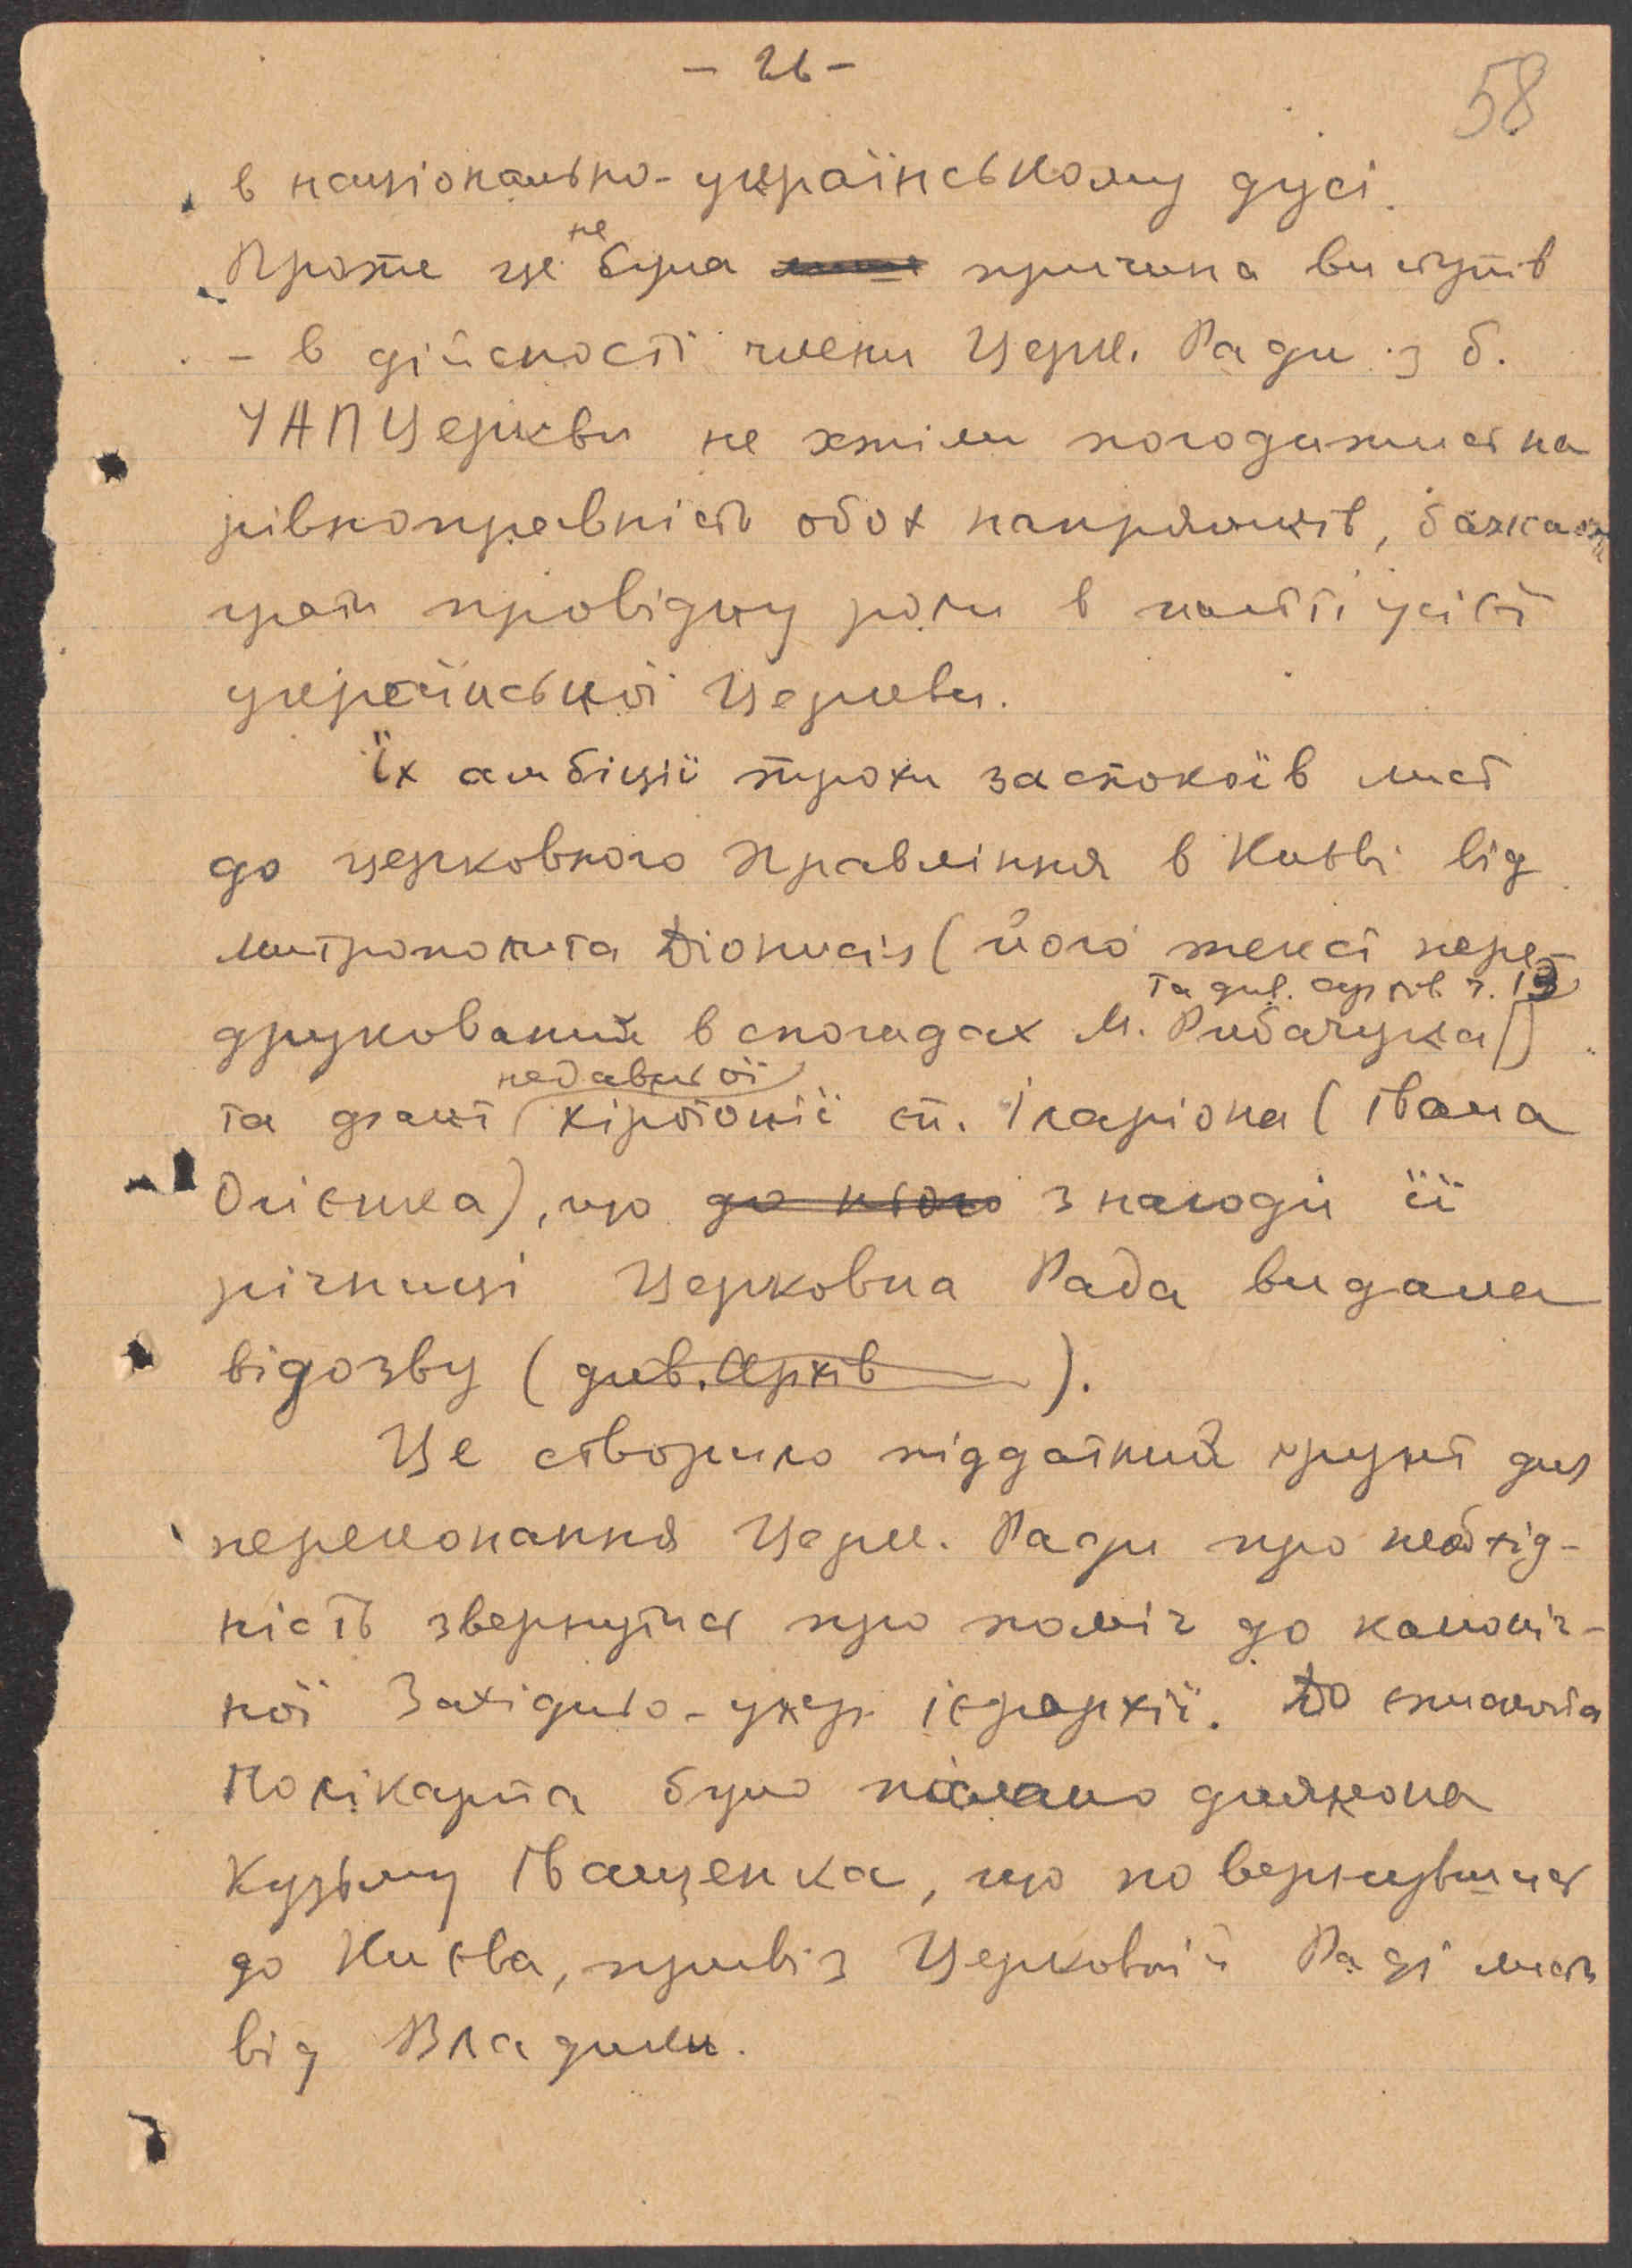 - 26 -
58
в національно-українському дусі.
Проте це не була причина виступів
- в дійсності члени Церк. Ради з б.
УАПЦеркви не хтіли погодитись на
рівноправність обох напрямків, бажаючи
грати провідну ролю в житті усієї
української Церкви.
Їх амбіції трохи заспокоїв лист
до церковного правління в Києві від
митрополита Діонисія (його текст пере-
та див. архів ч. 13
друкований в спогадах М. Рибачука)
недавньої
та факт хіротонії єп. Іларіона (Івана
Огієнка), що до нього з нагоди її
річниці Церковна Рада видала
відозву (див. Архів ).
Це створило піддатний грунт для
переконання Церк. Ради про необхід-
ність звернутися про поміч до каноніч-
ної Західньо-укр. ієрархії. До єпископа
Полікарпа було послано диякона
Кузьму Іващенка, що повернувшися
до Києва, привіз Церковній Раді лист
від Владики.